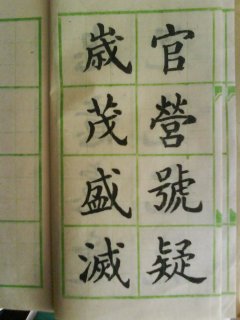 官營號疑
歳茂盛滅